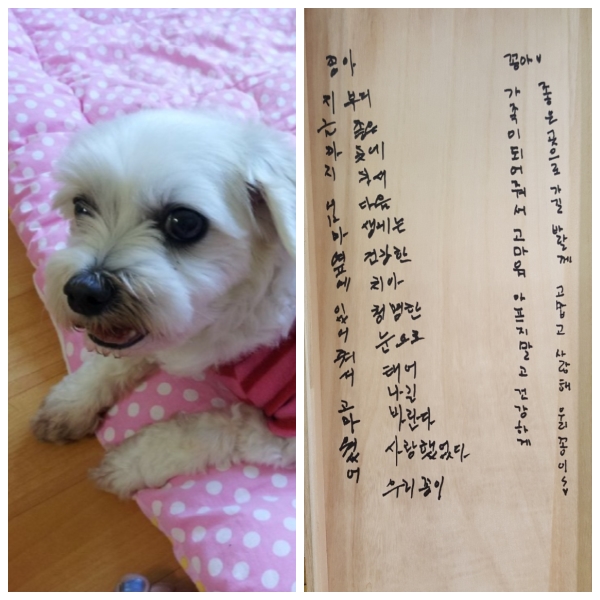 꽁아
지금까지 엄마 옆에 있어줘서 고마웠어
부디
좋은
곳에
가서
다음
생에는
건강한
치아
청명한
눈으로
태어
나길
바란다
사랑했었다
우리꽁이
꽁아
가족이되어줘서 고마움 아프지말고 건강하게
좋은곳으로 가길 바랄께 고맙고 사랑해 우리꽁이